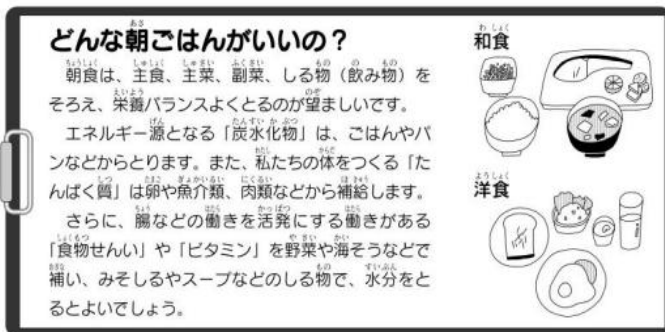 どんな朝ごはんがいいの？
朝食は、主食、主菜、副菜、しる物（飲み物）を
そろえ、栄養バランスよくとるのが望ましいです。
エネルギー源となる「炭水化物」は、ごはんやパ
ンなどからとります。また、私たちの体をつくる「た
んぱく質」は卵や魚介類、肉類などから補給します。
さらに、腸などの働きを活発にする働きがある
「食物せんい」や「ビタミン」を野菜や海そうなどで
補い、みそしるやスープなどのしる物で、水分をと
るとよいでしょう。
和食
洋食